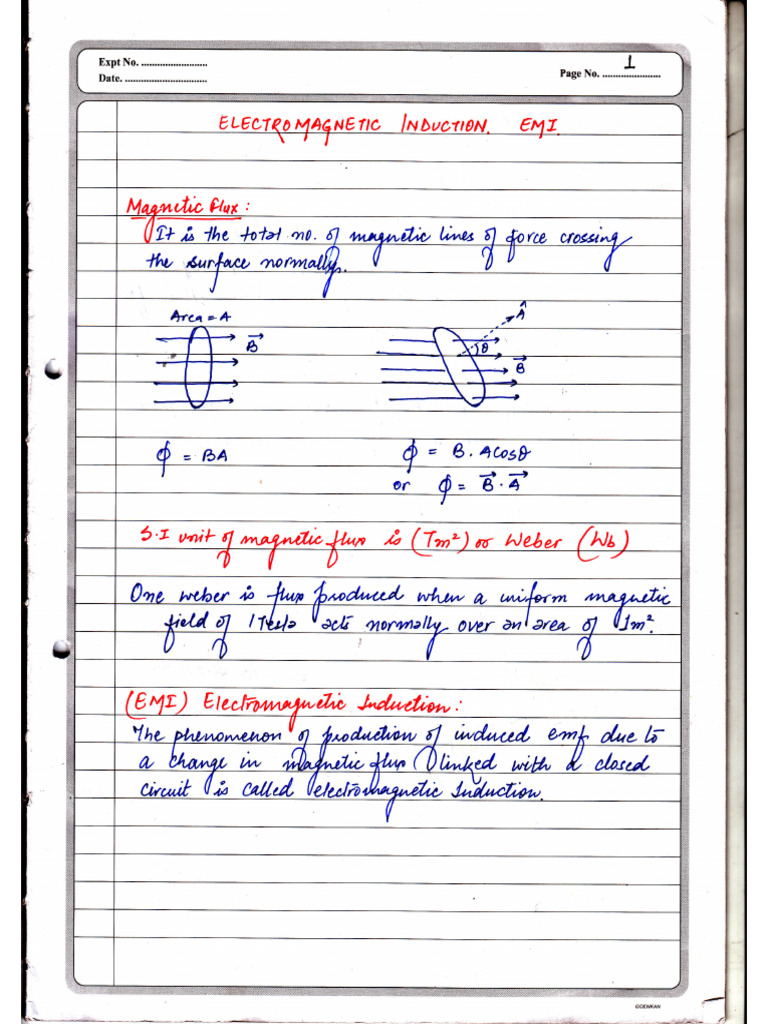 Expt No. ..........................
1
Date. ..............................
Page No. .....................
ELECTROMAGNETIC INDUCTION. EMI.
Magnetic flux:
It is the total no. of magnetic lines of force crossing
the surface normally.
Area = A
B
n̂
θ
B
ϕ = BA
ϕ = B. Acosθ
or ϕ = B . A
S.I unit of magnetic flux is (Tm²) or Weber (Wb)
One weber is flux produced when a uniform magnetic
field of 1 Tesla acts normally over an area of 1m².
(EMI) Electromagnetic Induction:
The phenomenon of production of induced emf due to
a change in magnetic flux linked with a closed
circuit is called electromagnetic Induction.